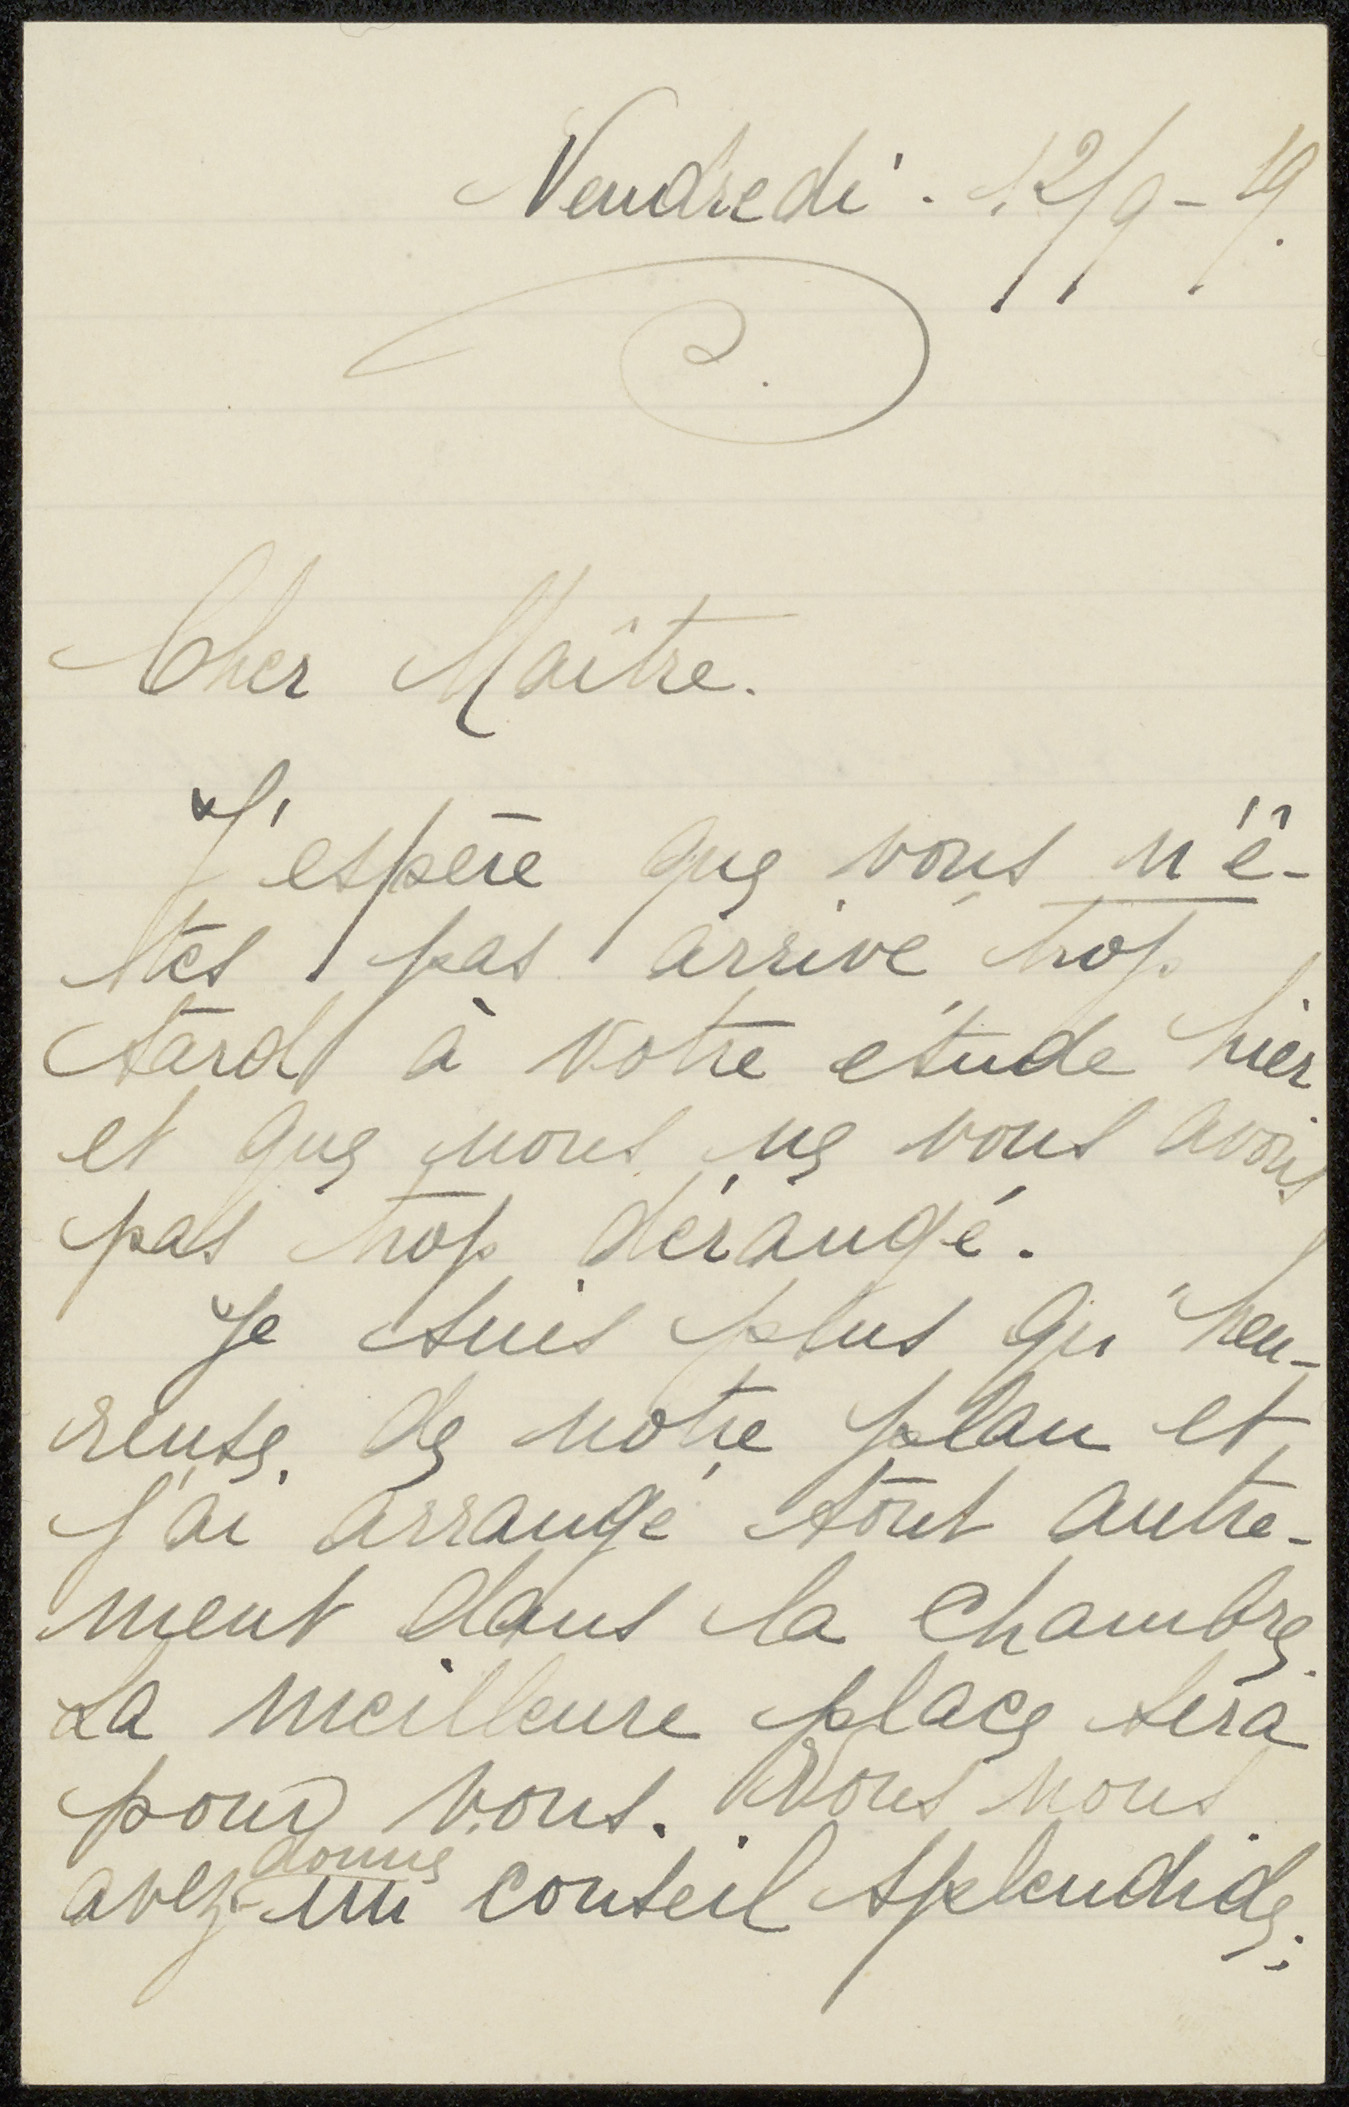 Vendredi. 12/9-19.
Cher Maître.
J'espère que vous n'ê-
tes pas arrivé trop
tard à votre étude hier
et que nous ne vous avons
pas trop dérangé.
Je suis plus qu'heu-
reuse de notre plan et
j'ai arrangé tout autre-
ment dans la chambre.
La meilleure place sera
pour vous. Vous nous
donné
avez un conseil splendide;